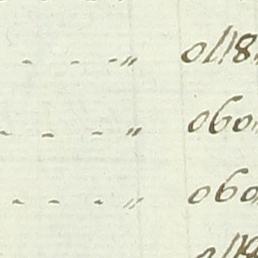 - - - „ 0118
- - - „ 060
- - - „ 060